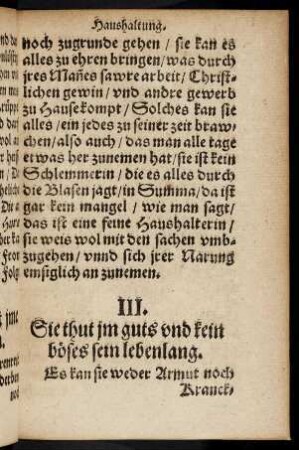 Haushaltung.
noch zugrunde gehen / sie kan es
alles zu ehren bringen / was durch
jres Mañes sawre arbeit / Christ-
lichen gewin / vnd andre gewerb
zu Hause kompt / Solches kan sie
alles / ein jedes zu seiner zeit braw-
chen / also auch / das man alle tage
etwas her zunemen hat / sie ist kein
Schlemmerin / die es alles durch
die Blasen jagt / in Summa / da ist
gar kein mangel / wie man sagt /
das ist eine feine Haushalterin /
sie weis wol mit den sachen vmb-
zugehen / vnnd sich jrer Narung
emsiglich an zunemen.
III.
Sie thut jm guts vnd kein
böses sein lebenlang.
Es kan sie weder Armut noch
Kranck-